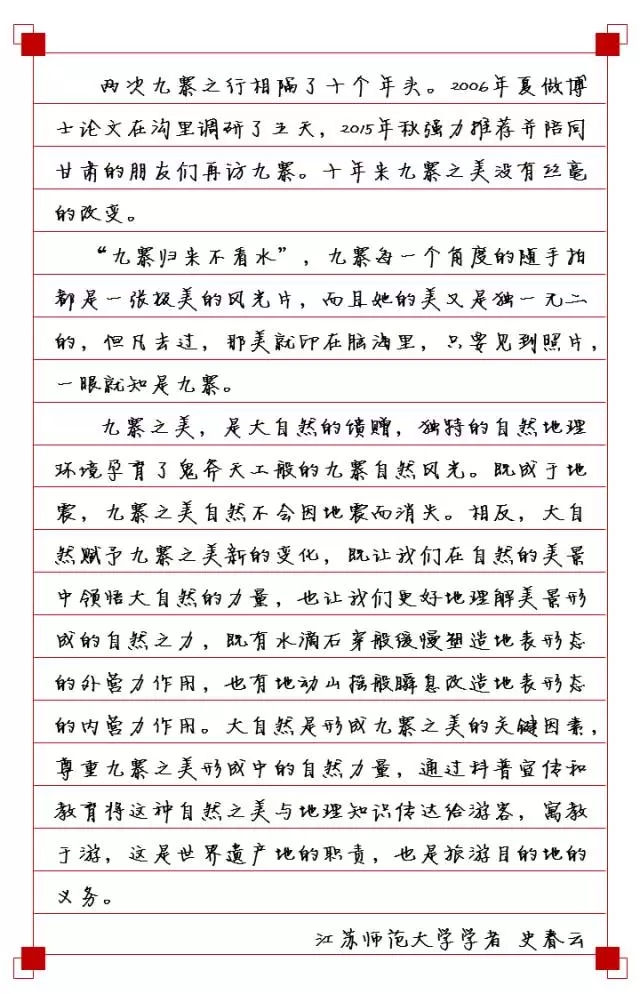 两次九寨之行相隔了十个年头。2006年夏做博
士论文在沟里调研了五天，2015年秋强力推荐并陪同
甘肃的朋友们再访九寨。十年来九寨之美没有丝毫
的改变。
“九寨归来不看水”，九寨每一个角度的随手拍
都是一张极美的风光片，而且她的美又是独一无二
的，但凡去过，那美就印在脑海里，只要见到照片，
一眼就知是九寨。
九寨之美，是大自然的馈赠，独特的自然地理
环境孕育了鬼斧天工般的九寨自然风光。既成于地
震，九寨之美自然不会因地震而消失。相反，大自
然赋予九寨之美新的变化，既让我们在自然的美景
中领悟大自然的力量，也让我们更好地理解美景形
成的自然之力，既有水滴石穿般缓慢塑造地表形态
的外营力作用，也有地动山摇般瞬息改造地表形态
的内营力作用。大自然是形成九寨之美的关键因素，
尊重九寨之美形成中的自然力量，通过科普宣传和
教育将这种自然之美与地理知识传达给游客，寓教
于游，这是世界遗产地的职责，也是旅游目的地的
义务。
江苏师范大学学者 史春云